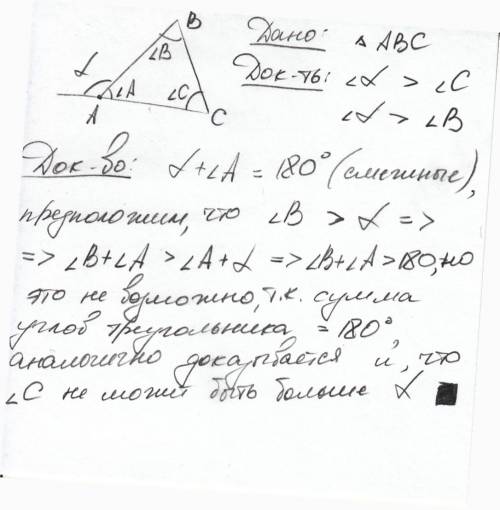 B
∠B
α
∠A
∠C
A
C
Дано: △ ABC
Док-ть: ∠α > ∠C
∠α > ∠B
Док-во: α+∠A = 180° (смежные),
предположим, что ∠B > α =>
=> ∠B+∠A > ∠A+α => ∠B+∠A > 180, но
это не возможно, т.к. сумма
углов треугольника = 180°,
аналогично доказывается и, что
∠C не может быть больше α